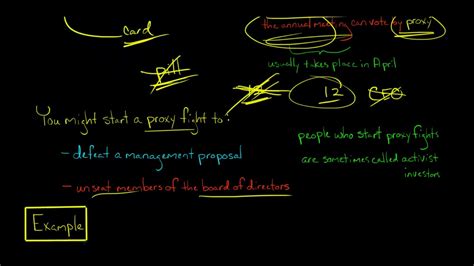 card
the annual meeting can vote by proxy
usually takes place in April
pill
12 CEO
You might start a proxy fight to:
- defeat a management proposal
- unseat members of the board of directors
people who start proxy fights
are sometimes called activist
investors
Example